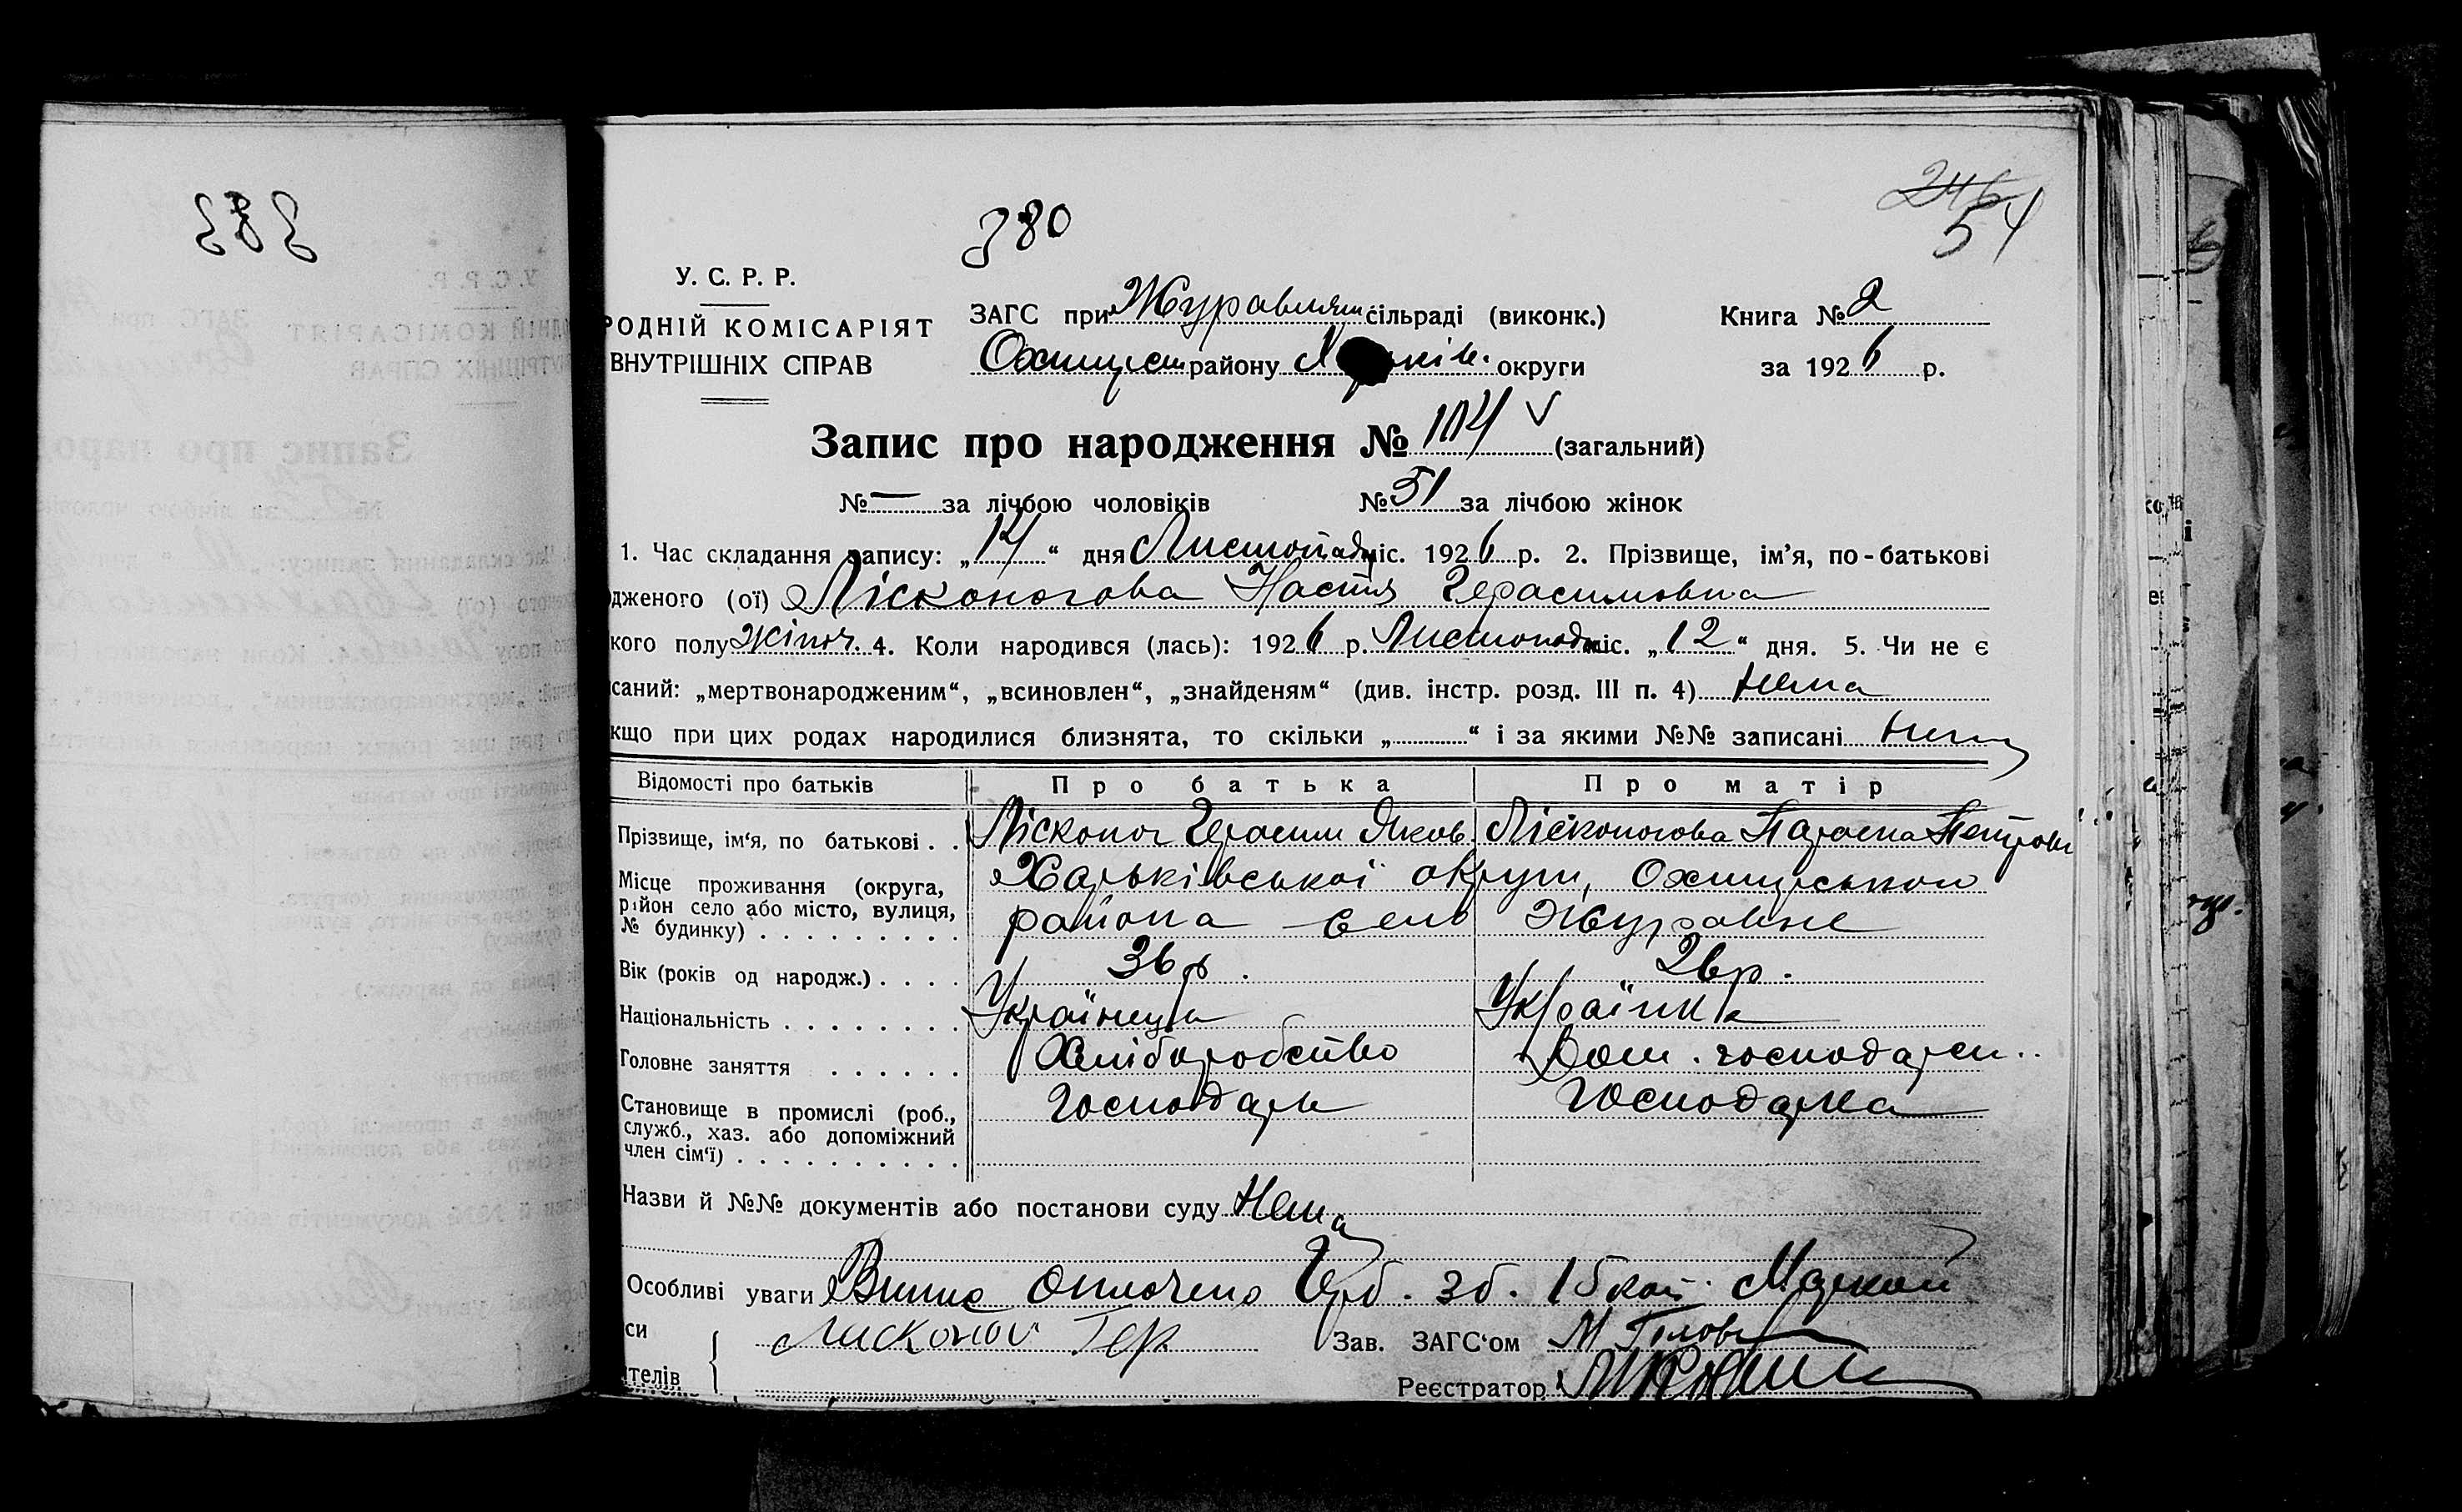 383
246
54
380
У. С. Р. Р.
РОДНІЙ КОМІСАРІЯТ
ВНУТРІШНІХ СПРАВ
ЗАГС при Журавлян сільраді (виконк.)
Книга № 2
району округи
за 1926 р.
Запис про народження № 104 (загальний)
№ — за лічбою чоловіків № 51 за лічбою жінок
1. Час складання запису: „14“ дня Листопада міс. 1926 р. 2. Прізвище, ім’я, по-батькові
дженого (ої) Лісконогова Настя Герасимовна
кого полу жіноч. 4. Коли народився (лась): 1926 р. Листопада міс. „12“ дня. 5. Чи не є
саний: „мертвонародженим“, „всиновлен“, „знайденям“ (див. інстр. розд. III п. 4) Нема
кщо при цих родах народилися близнята, то скільки „......“ і за якими №№ записані Нема
Відомості про батьків Про батька Про матір
Прізвище, ім‘я, по батькові . . Лісконог Герасим Яков. Лісконогова Параска Петровн
Місце проживання (округа, район село або місто, вулиця, № будинку) Харьківської округи, Охтирського
района село Журавне
Вік (років од народж.) . . . . 36 р. 26 р.
Національність . . . . . . . . Українець Українка
Головне заняття . . . . . . Хліборобство Дом. господарст..
Становище в промислі (роб., служб., хаз. або допоміжний член сім‘ї) . . . . . . . . . . Господарь Господарка
Назви й №№ документів або постанови суду Нема
Особливі уваги оплочено Герб. зб. 15 коп.
си Лисконог Гер Зав. ЗАГС‘ом
ителів Реєстратор